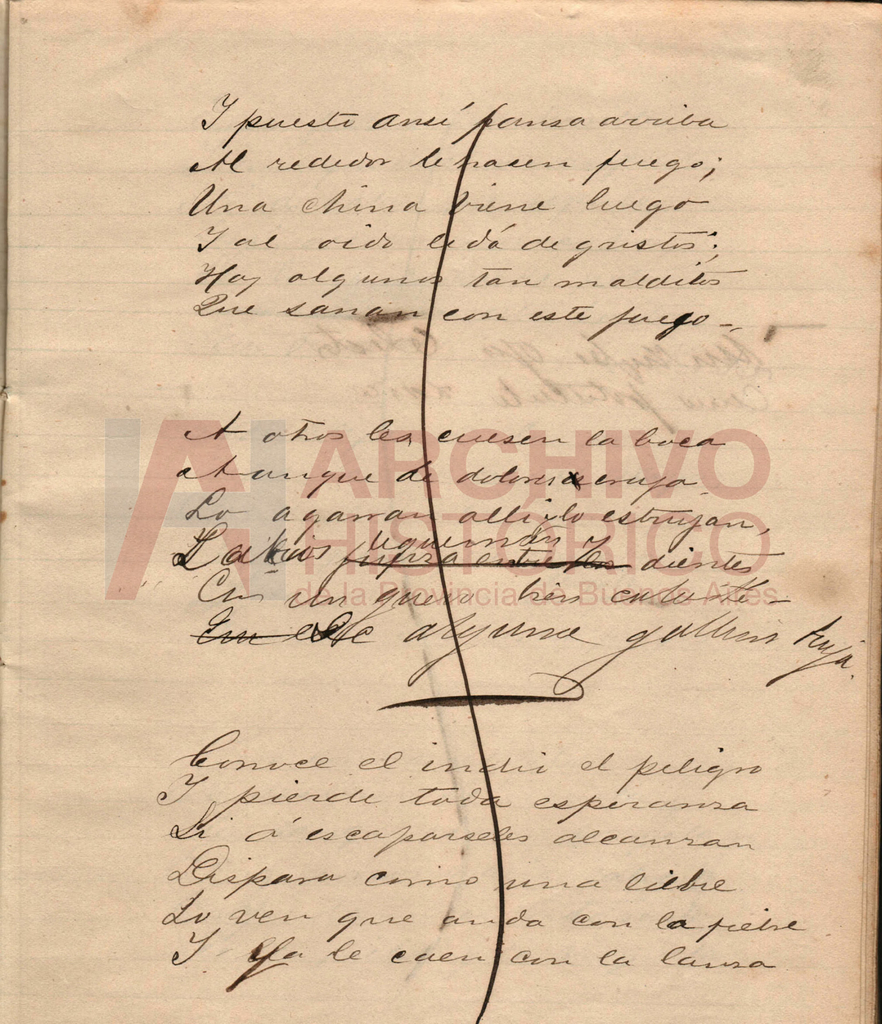 I puesto ansí panza arriba
Al rededor le hasen fuego;
Una china viene luego
I al oido le dá de gritos;
Hay algunos tan malditos
Que sanan con este juego
A otros les cuesen la boca
Aunque de dolores cruja
Lo agarran allí y lo estrujan,
Labios le queman y dientes
Con un guevo bien caliente
de alguna gallina bruja.
Conoce el indio el peligro
I pierde toda esperanza
Si á escaparseles alcanzan
Dispara como una liebre
Lo ven que anda con la fiebre
I ya le caen con la lanza
ARCHIVO
HISTÓRICO
de la Provincia de Buenos Aires